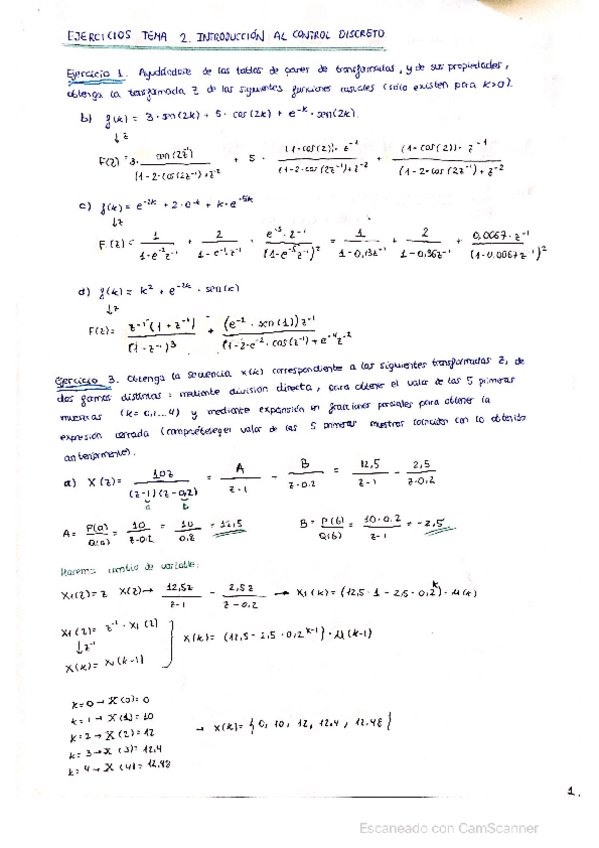 EJERCICIOS TEMA 2. INTRODUCCIÓN AL CONTROL DISCRETO
Ejercicio 1. Ayudándote de las tablas de pares de transformadas, y de sus propiedades,
obtenga la transformada Z de las siguientes funciones causales (solo existen para k>0).
b) f(k) = 3·sen(2k) + 5·cos(2k) + e^-k·sen(2k).
↓z
F(z) = 3· sen(2z^-1) / (1-2·cos(2z^-1)+z^-2 + 5· (1-cos(2))·z^-1 / (1-2·cos(2z^-1)+z^-2 + (1-cos(2))·z^-1 / (1-2·cos(2z^-1)+z^-2
c) f(k) = e^-2k + 2·e^-k + k·e^-5k
↓z
F(z) = 1 / 1-e^-2z^-1 + 2 / 1-e^-1z^-1 + e^-5·z^-1 / (1-e^-5z^-1)^2 = 1 / 1-0,13z^-1 + 2 / 1-0,36z^-1 + 0,0067·z^-1 / (1-0,0067z^-1)^2
d) f(k) = k^2 + e^-2k·sen(k)
↓z
F(z) = z^-1(1+z^-1) / (1-z^-1)^3 + (e^-2·sen(1))z^-1 / (1-2·e^-2·cos(z^-1)+e^-4z^-2
Ejercicio 3. Obtenga la secuencia x(k) correspondiente a las siguientes transformadas Z, de
dos formas distintas: mediante division directa, para obtener el valor de las 5 primeras
muestras (k=0,1...4) y mediante expansión en fracciones parciales para obtener la
expresión cerrada ( valor de las 5 primeras muestras coinciden con lo obtenido
anteriormente).
a) X(z) = 10z / (z-1)(z-0,2) = A / z-1 - B / z-0.2 = 12,5 / z-1 - 2,5 / z-0,2
a b
A = P(a)/Q(a) = 10 / z-0.2 = 10 / 0,8 = 12,5 B = P(b)/Q(b) = 10·0.2 / z-1 = -2,5
Haremos cambio de variable:
X1(z) = z X(z) → 12,5z / z-1 - 2,5z / z-0,2 → X1(k) = (12,5·1 - 2,5·0,2^k)·u(k)
X1(z) = z^-1·X1(z)
↓z^-1
X(k) = X1(k-1)
X(k) = (12,5 - 2,5·0,2^k-1)·u(k-1)
k=0 → X(0) = 0
k=1 → X(1) = 10
k=2 → X(2) = 12
k=3 → X(3) = 12.4
k=4 → X(4) = 12.48
→ X(k) = {0, 10, 12, 12.4, 12.48}
1.
Escaneado con CamScanner